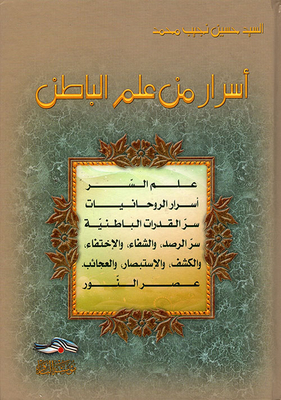 السيد حسين نجيب محمد
أسرار من علم الباطن
علم السّر
أسرار الروحانيات
سرّ القدرات الباطنيّة
سرّ الرصد، والشفاء، والإختفاء،
والكشف، والإستبصار، والعجائب.
عصر النّور